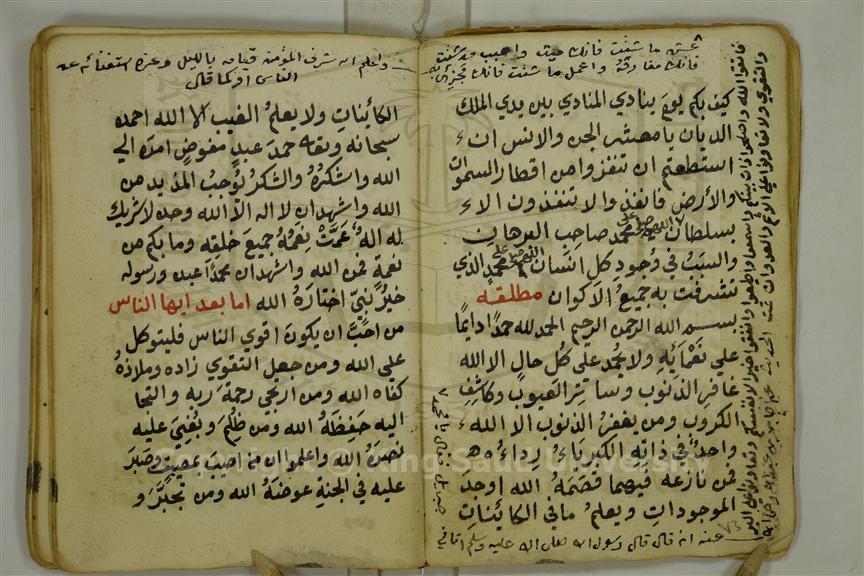 عش ما شئت فانك ميت واحبب من شئت
فانك مفارقه واعمل ما شئت فانك مجزي به
كيف بكم يوم ينادي المنادي بين يدي الملك
الديان يا معشر الجن والانس ان
استطعتم ان تنفذوا من اقطار السموات
والأرض فانفذوا لا تنفذون الا
بسلطان اللهم صل على محمد صاحب البرهان
والسبب في وجود كل انسان اللهم صل على محمد الذي
تشرفت به جميع الاكوان مطلقته
بسم الله الرحمن الرحيم الحمد لله حمدا دايما
على نعمائه ولا يحمد على كل حال الا الله
غافر الذنوب وساتر العيوب وكاشف
الكروب ومن يغفر الذنوب الا الله
واحد في ذاته الكبرياء رداءه
فمن نازعه فيهما قصمه الله اوجد
الموجودات ويعلم ما في الكائينات
عنه انه قال قال رسول الله صلى الله عليه وسلم اتاني
جبريل فقال يا محمد
فاتقوا الله واصلحوا ذات بينكم واسمعوا واطيعوا وانفقوا خيرا لانفسكم وتعاونوا على البر
والتقوى ولا تعاونوا على الاثم والعدوان الحديث
واعلم ان شرف المؤمن قيامه بالليل وعزه استغنائه عن
الناس او كما قال
الكائينات ولا يعلم الغيب الا الله احمده
سبحانه وتعالى حمد عبد مفوض امره الى
الله واشكره والشكر يوجب المزيد من
الله واشهد ان لا اله الا الله وحده لا شريك
له اله عمت نعمه جميع خلقه وما بكم من
نعمة فمن الله واشهد ان محمدا عبده ورسوله
خير نبي اختاره الله اما بعد ايها الناس
من احب ان يكون اقوي الناس فليتوكل
على الله ومن جعل التقوى زاده وملاذه
كفاه الله ومن ارتجى رحمة ربه والتجا
اليه حفظه الله ومن ظلم وبغي عليه
نصره الله واعلموا ان من اصيب بمصيبة وصبر
عليه في الجنة عوضه الله ومن تجبر و
Copyright © King Saud University